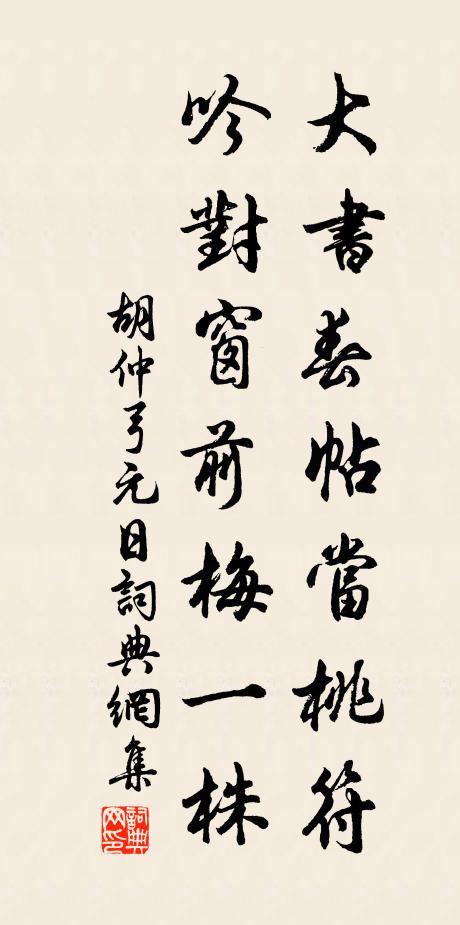 大書春帖當桃符
吟對窗前梅一株
胡仲弓元日詞典網集
詞典網印